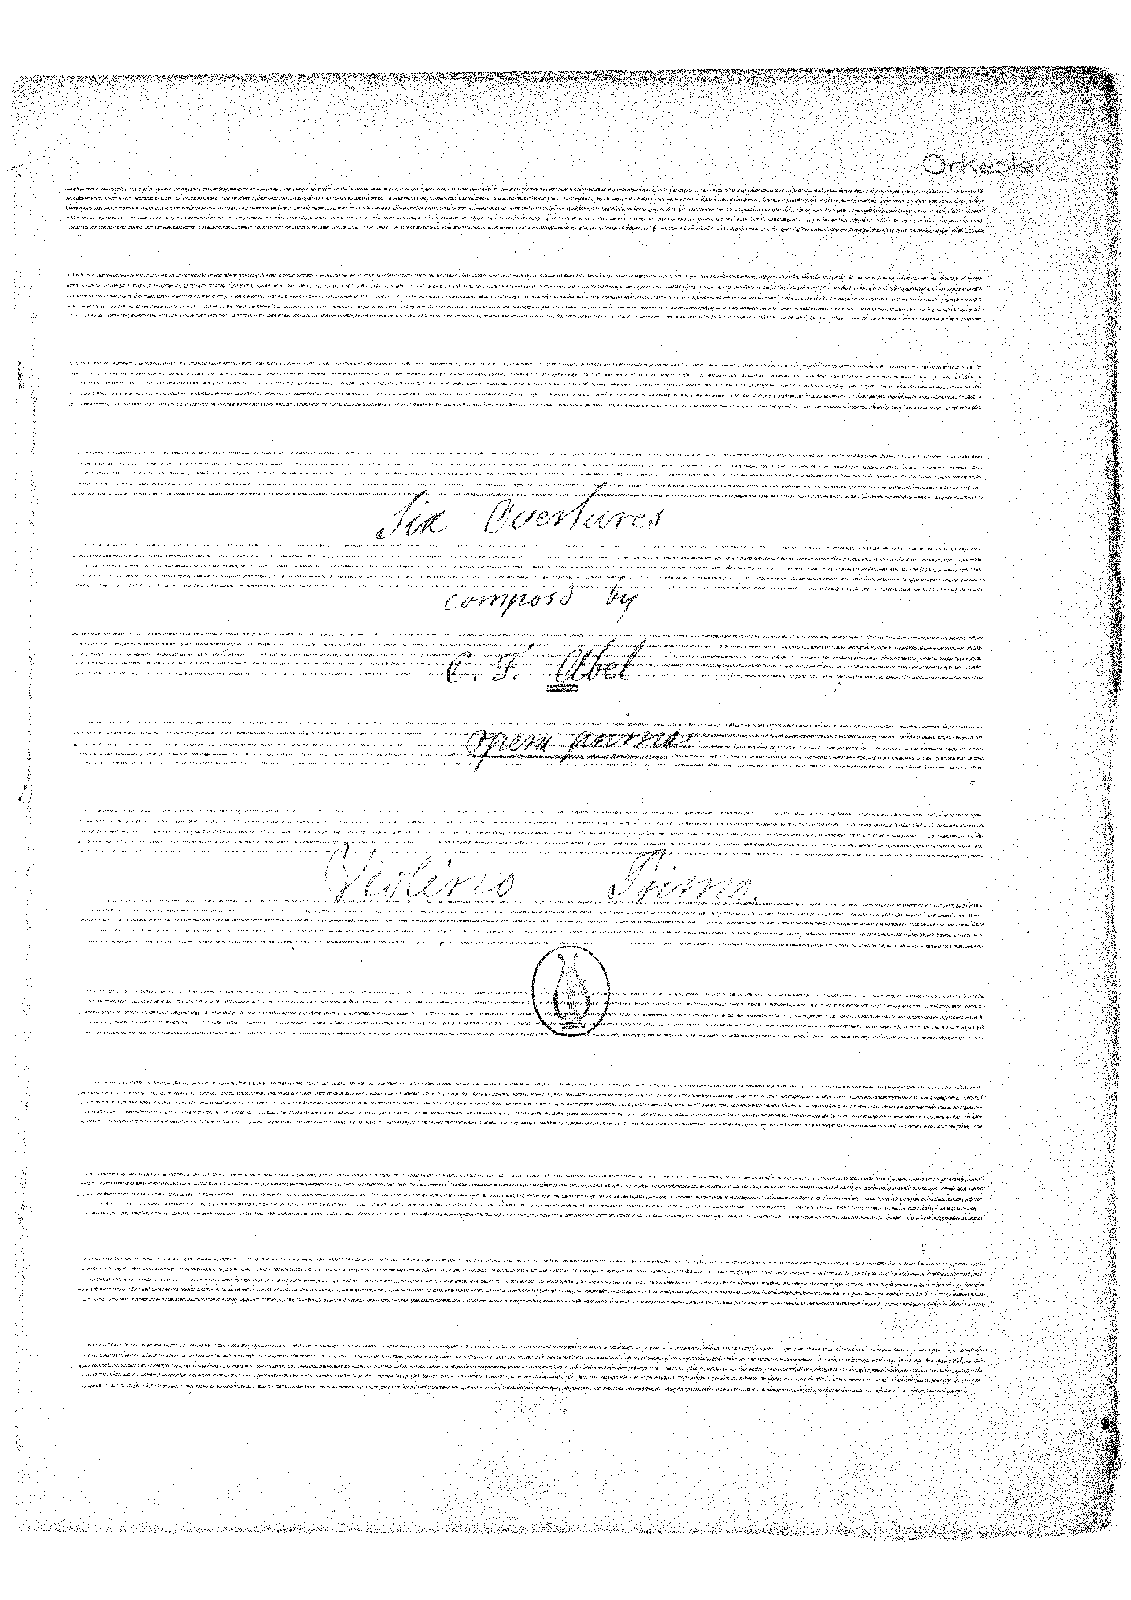 Orkester
Six Overtures
composd by
C. F. Abel
opera prima
Violino Primo.